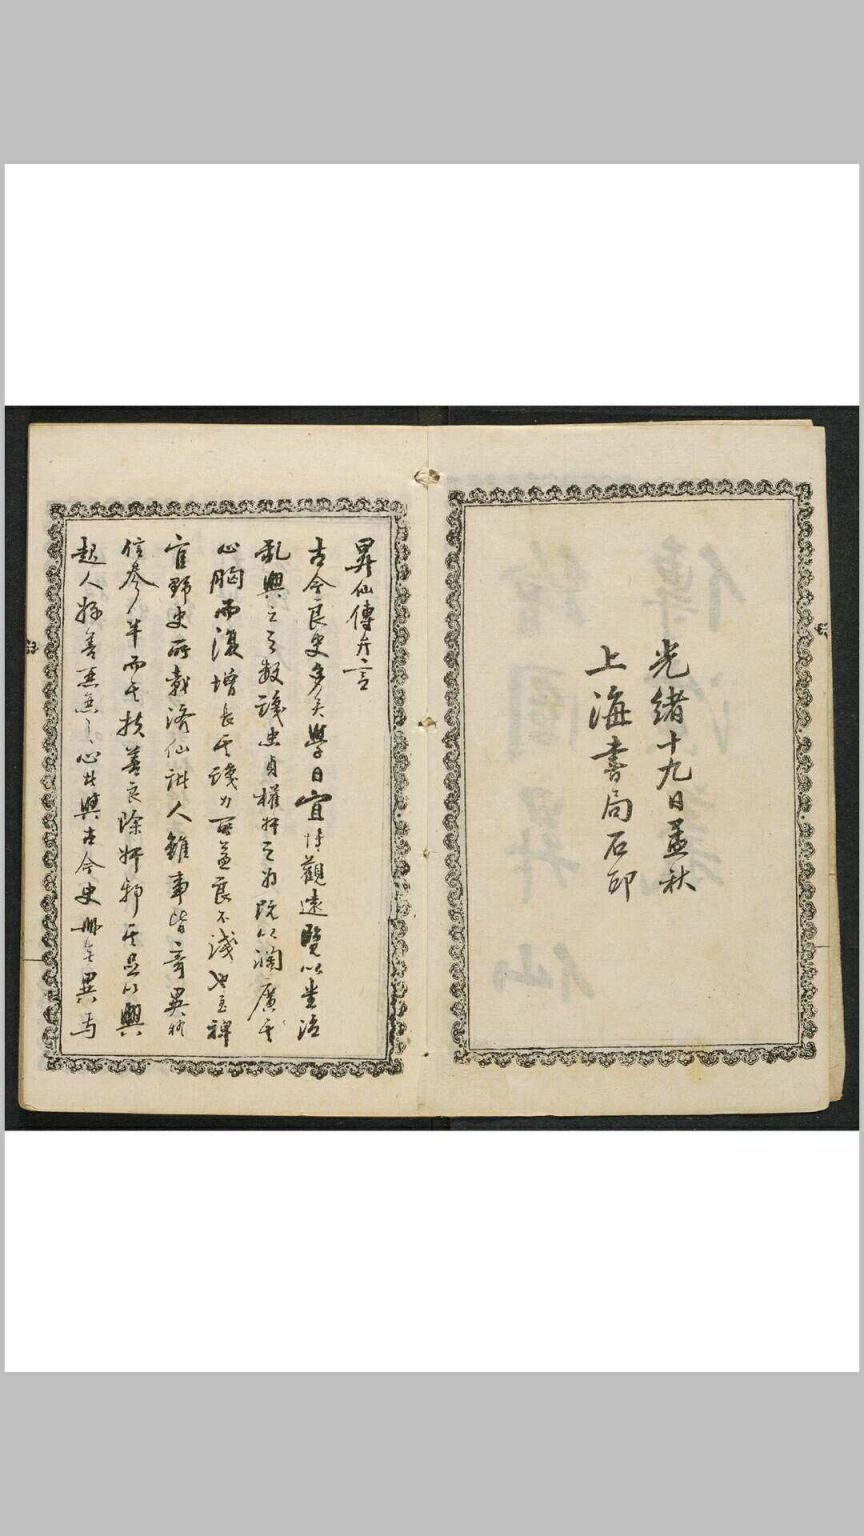 光緒十九日孟秋
上海書局石印
昇仙傳弁言
古今良史多矣學日宜博觀遠覽以悉治
亂興亡之数識忠貞權奸之為既以濶廣其
心胸而復增長其識力所益良不淺也至稗
官野史所載濟仙詼人雖事皆奇異疑
信參半而其扶善良除奸邪其足以興
起人好善惡惡之心此與古今史冊無異与